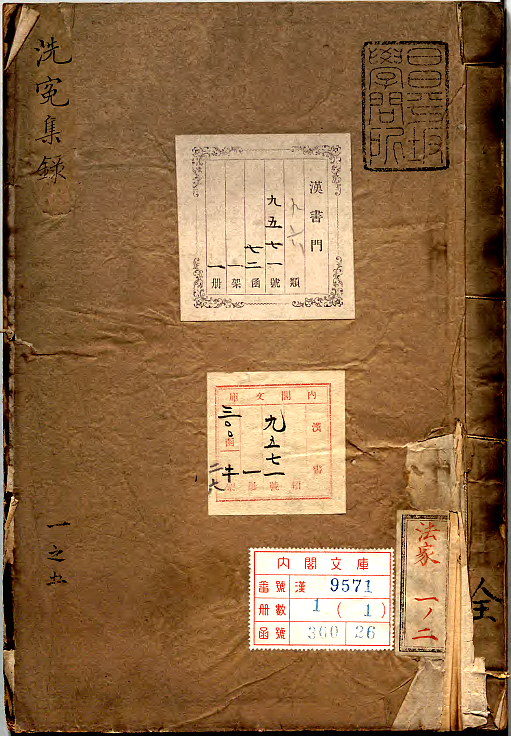 洗冤集錄
一之五
昌平坂
學問所
漢書門
類
九五七一號
七二函
一架
一册
内閣文庫
漢書
九五七一
三〇〇函
内閣文庫
番號 漢 9571
册數 1 ( 1 )
函號 300 26
法家 一ノ二
全